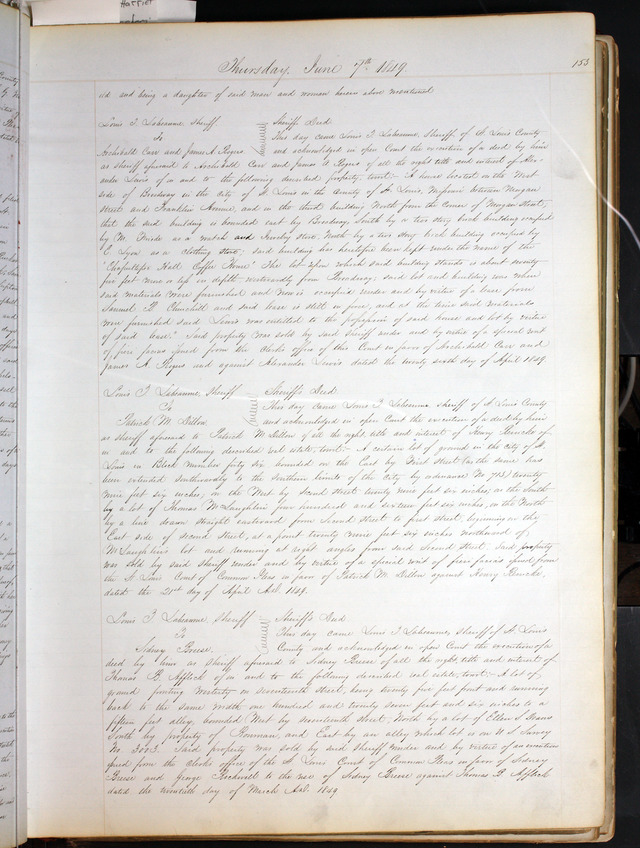 Harriet
Thursday, June 7th 1849
153
and being a daughter of said man and woman herein above mentioned
Louis T. Labeaume, Sheriff
To
Archibald Carr and James A Rogers
Sheriff's Deed
This day came Louis T Labeaume, Sheriff of St Louis County
and acknowledged in open Court the execution of a deed by him
as sheriff aforesaid to Archibald Carr and James A Rogers of all the right title and interest of Alex-
ander Lewis of in and to the following described property, towit:- A house located on the West
side of Broadway in the City of St Louis in the County of St Louis, Missouri between Morgan
Street and Franklin Avenue, and is the third building North from the corner of Morgan Street,
that the said building is bounded east by Broadway South by a two story brick building occupied
by M. as a watch and Jewelry store, North by a two story brick building occupied by
C. Lyon as a clothing store; said building has heretofore been kept under the name of the
Hall Coffee House" The lot upon which said building stands is about seventy
five feet more or less in depth westwardly from Broadway; said lot and building was when
said materials were furnished and now is occupied under and by virtue of a lease from
Samuel B. Churchill and said lease is still in force, and at the time said materials
were furnished said Lewis was entitled to the possession of said house and lot by virtue
of said lease." Said property was sold by said sheriff under and by virtue of a special writ
of fieri facias issued from the Clerk's office of this Court in favor of Archibald Carr and
James A. Rogers and against Alexander Lewis dated the twenty sixth day of April 1849
Louis T. Labeaume, Sheriff
To
Patrick M. Dillon
Sheriff's Deed
This day came Louis T. Labeaume, sheriff of St Louis County
and acknowledged in open Court the execution of a deed by him
as sheriff aforesaid to Patrick M Dillon of all the right title and interest of Henry of
in and to the following described real estate, towit:- A certain lot of ground in the city of St
Louis in Block Number fifty six bounded on the East by First Street (as the same has
been extended southwardly to the Southern limits of the City by ordinance No ) twenty
nine feet six inches, on the West by Second Street twenty nine feet six inches, on the South
by a lot of Thomas McLaughlin four hundred and sixteen feet six inches, on the North
by a line drawn straight eastward from Second Street to first street, beginning on the
East side of second Street, at a point twenty nine feet six inches northward of
McLaughlin's lot and running at right angles from said Second Street. Said property
was sold by said Sheriff under and by virtue of a special writ of fieri facias issued from
the St Louis Court of Common Pleas in favor of Patrick M. Dillon against Henry
dated the 21st day of April A.D. 1849.
Louis T. Labeaume, Sheriff
To
Sidney Breese
Sheriff's Deed
This day came Louis T. Labeaume, Sheriff of St. Louis
County and acknowledged in open Court the execution of a
deed by him as Sheriff aforesaid to Sidney Breese of all the right, title and interest of
Thomas B. Afflick of in and to the following described real estate, towit:- A lot of
ground fronting Westerly on Seventeenth Street, being twenty five feet front and running
back to the same width one hundred and twenty seven feet and six inches to a
fifteen feet alley, bounded West by seventeenth street, North by a lot of Ellen S Evans
South by property of Bowman, and East by an alley which lot is on U S Survey
No 3003. Said property was sold by said Sheriff under and by virtue of an execution
issued from the Clerks office of the St Louis Court of Common Pleas in favor of Sidney
Breese and George Rockwell to the use of Sidney Breese against Thomas B. Afflick
dated the twentieth day of March A.D. 1849